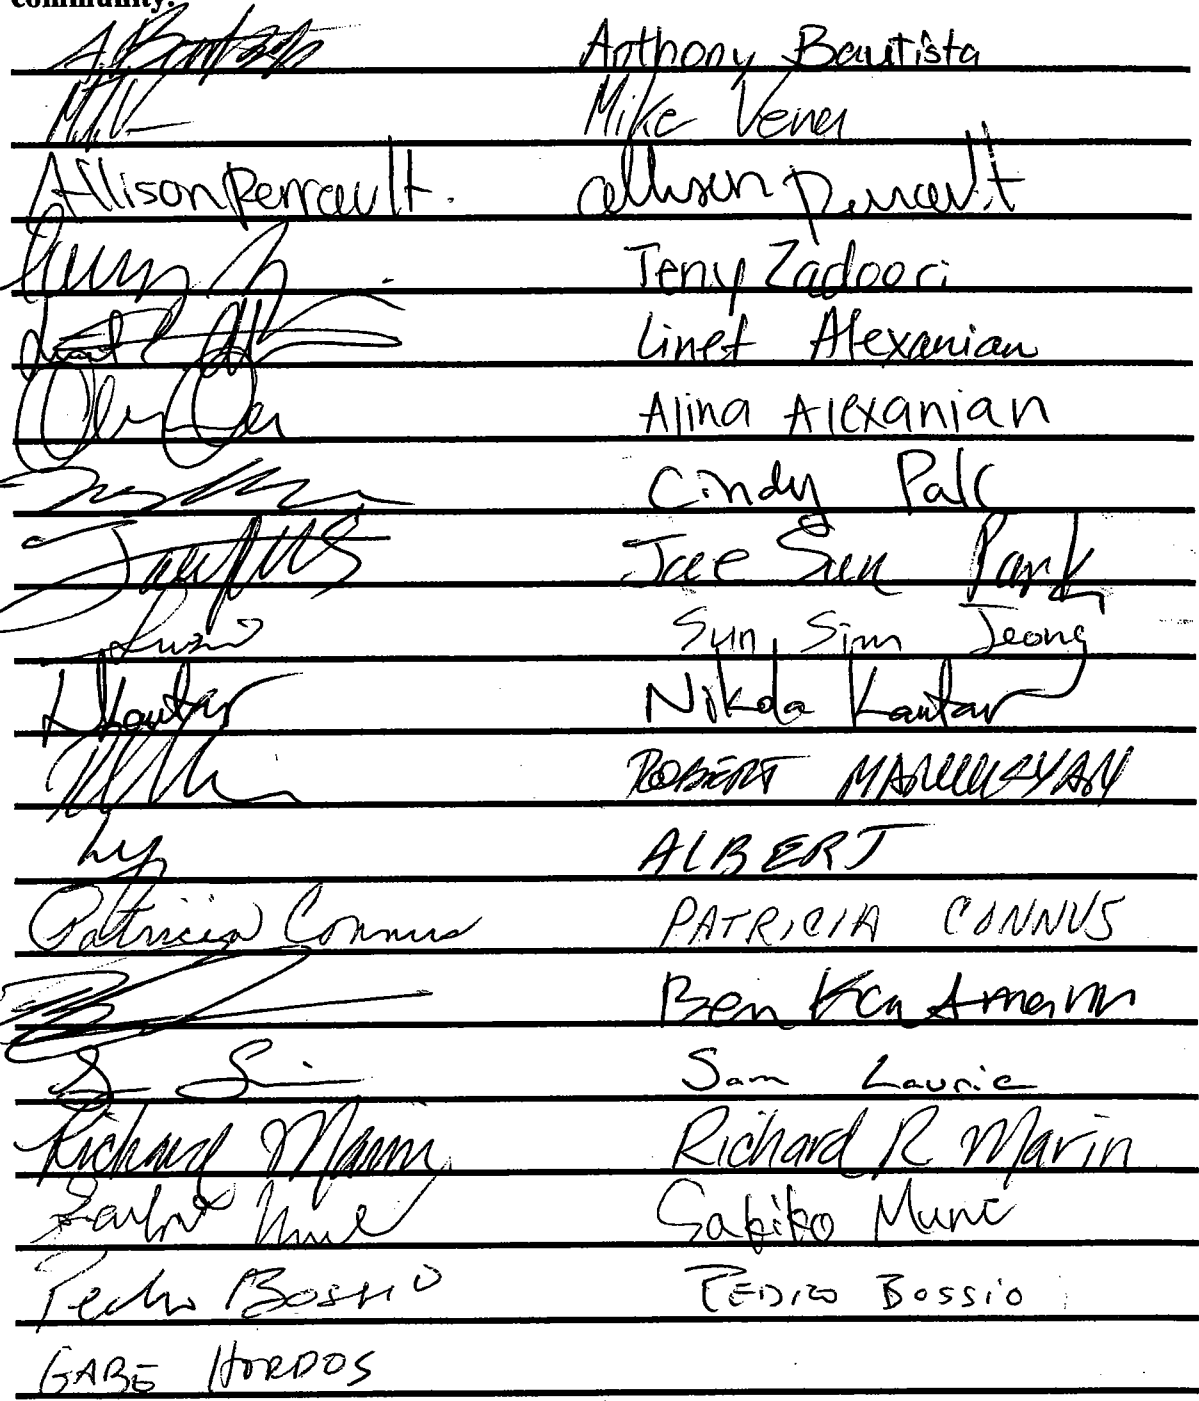 community.
A. Bautista Anthony Bautista
Mike Vener
Allison Perrault. Allison Perrault
Teny Zadoori
Linet Alexanian
Alina Alexanian
Cindy Palc
Jae Sun Park
Sun Sim Jeong
Kantar Nikola Kantar
ROBERT MANUKSYAN
ALBERT
Patricia Connus PATRICIA CONNUS
Ben
Sam Laurie
Richard Marin Richard R Marin
Sakiko Mune
Pedro Bossio PEDRO BOSSIO
GABE HORDOS